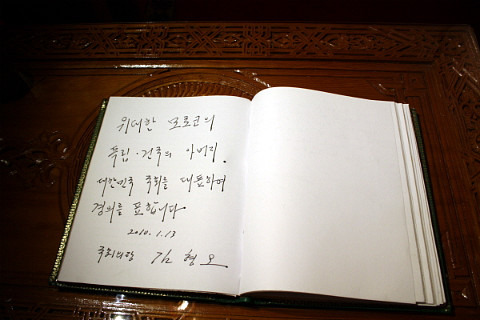 위대한 모로코의
독립·건국의 아버지.
대한민국 국회를 대표하여
경의를 표합니다
2010. 1. 13
국회의장 김 형 오